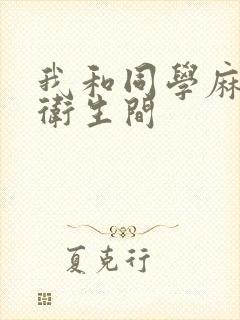 我和同學麻
衛生間
夏克行